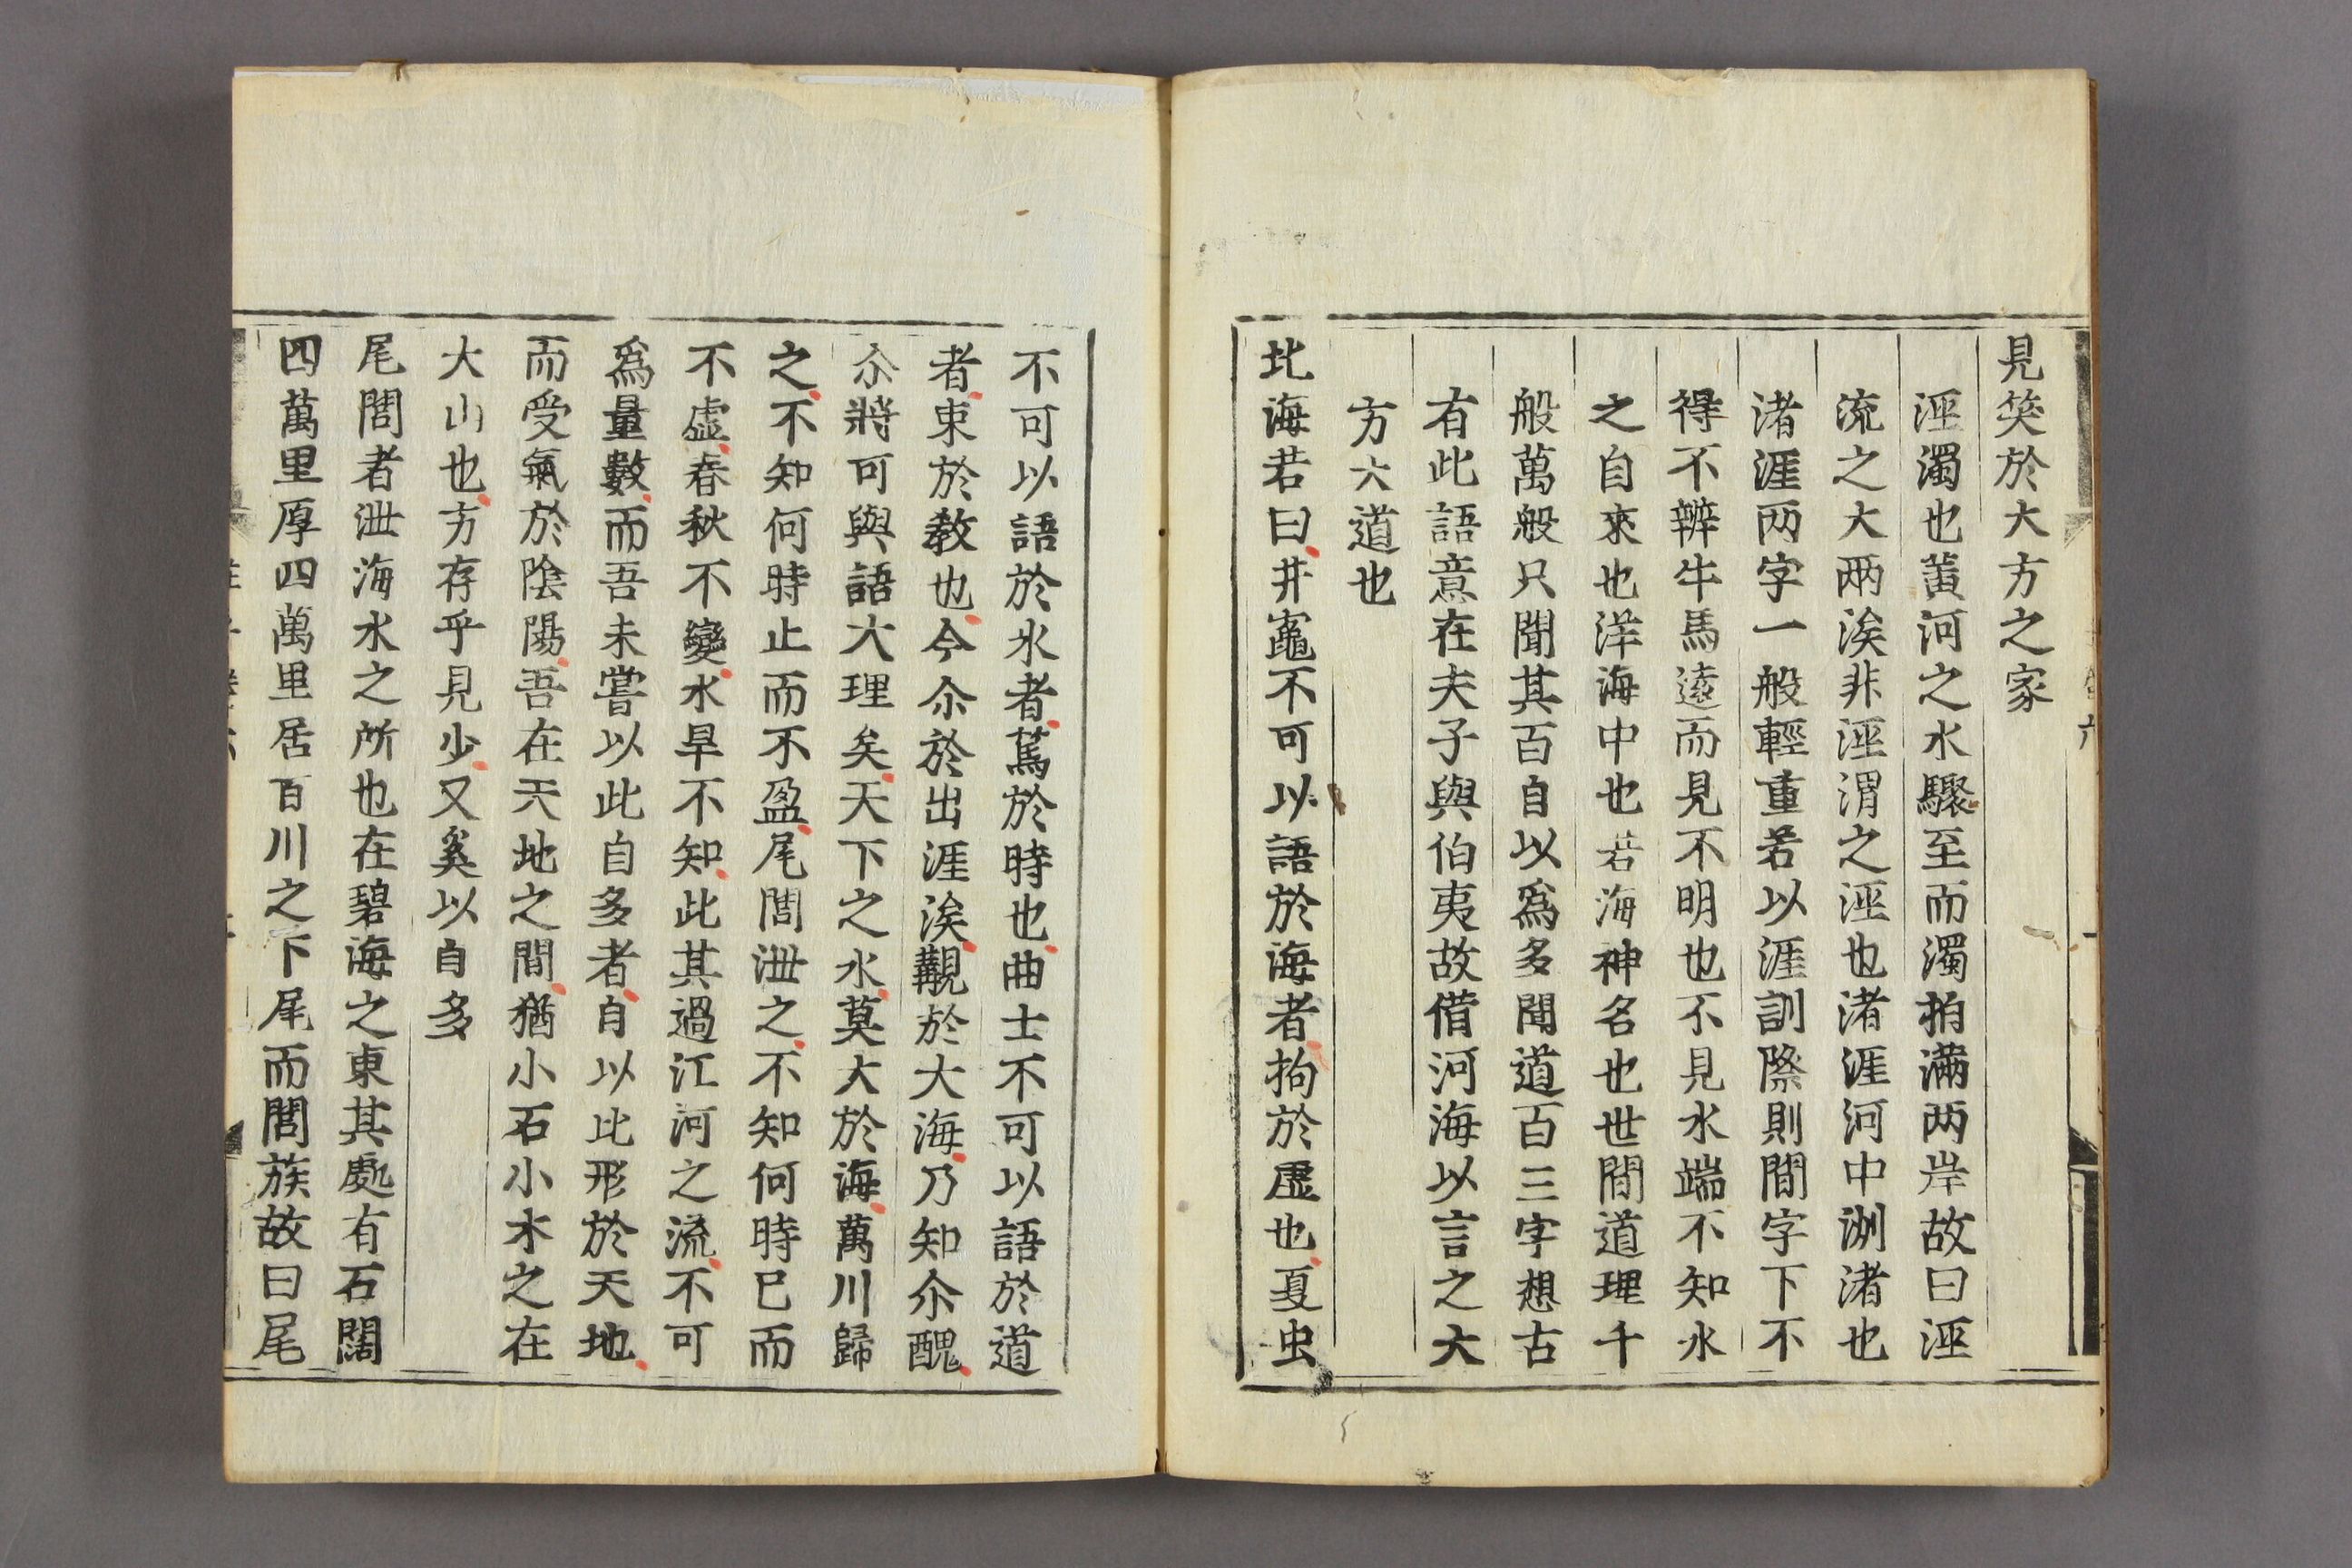 見笑於大方之家
涇濁也黃河之水驟至而濁拍滿两岸故曰涇
流之大兩涘非涇渭之涇也渚涯河中洲渚也
渚涯两字一般輕重若以涯訓際則間字下不
得不辨牛馬遠而見不明也不見水端不知水
之自來也洋海中也若海神名也世間道理千
般萬般只聞其百自以爲多聞道百三字想古
有此語意在夫子與伯夷故借河海以言之大
方大道也
北海若曰井鼃不可以語於海者拘於虛也夏虫
不可以語於氷者篤於時也曲士不可以語於道
者束於教也今尒於出涯涘觀於大海乃知尒醜
尒將可與語大理矣天下之水莫大於海萬川歸
之不知何時止而不盈尾閭泄之不知何時已而
不虛春秋不變水旱不知此其過江河之流不可
爲量數而吾未嘗以此自多者自以比形於天地
而受氣於陰陽吾在天地之間猶小石小木之在
大山也方存乎見少又奚以自多
尾閭者泄海水之所也在碧海之東其處有石闊
四萬里厚四萬里居百川之下尾而閭族故曰尾